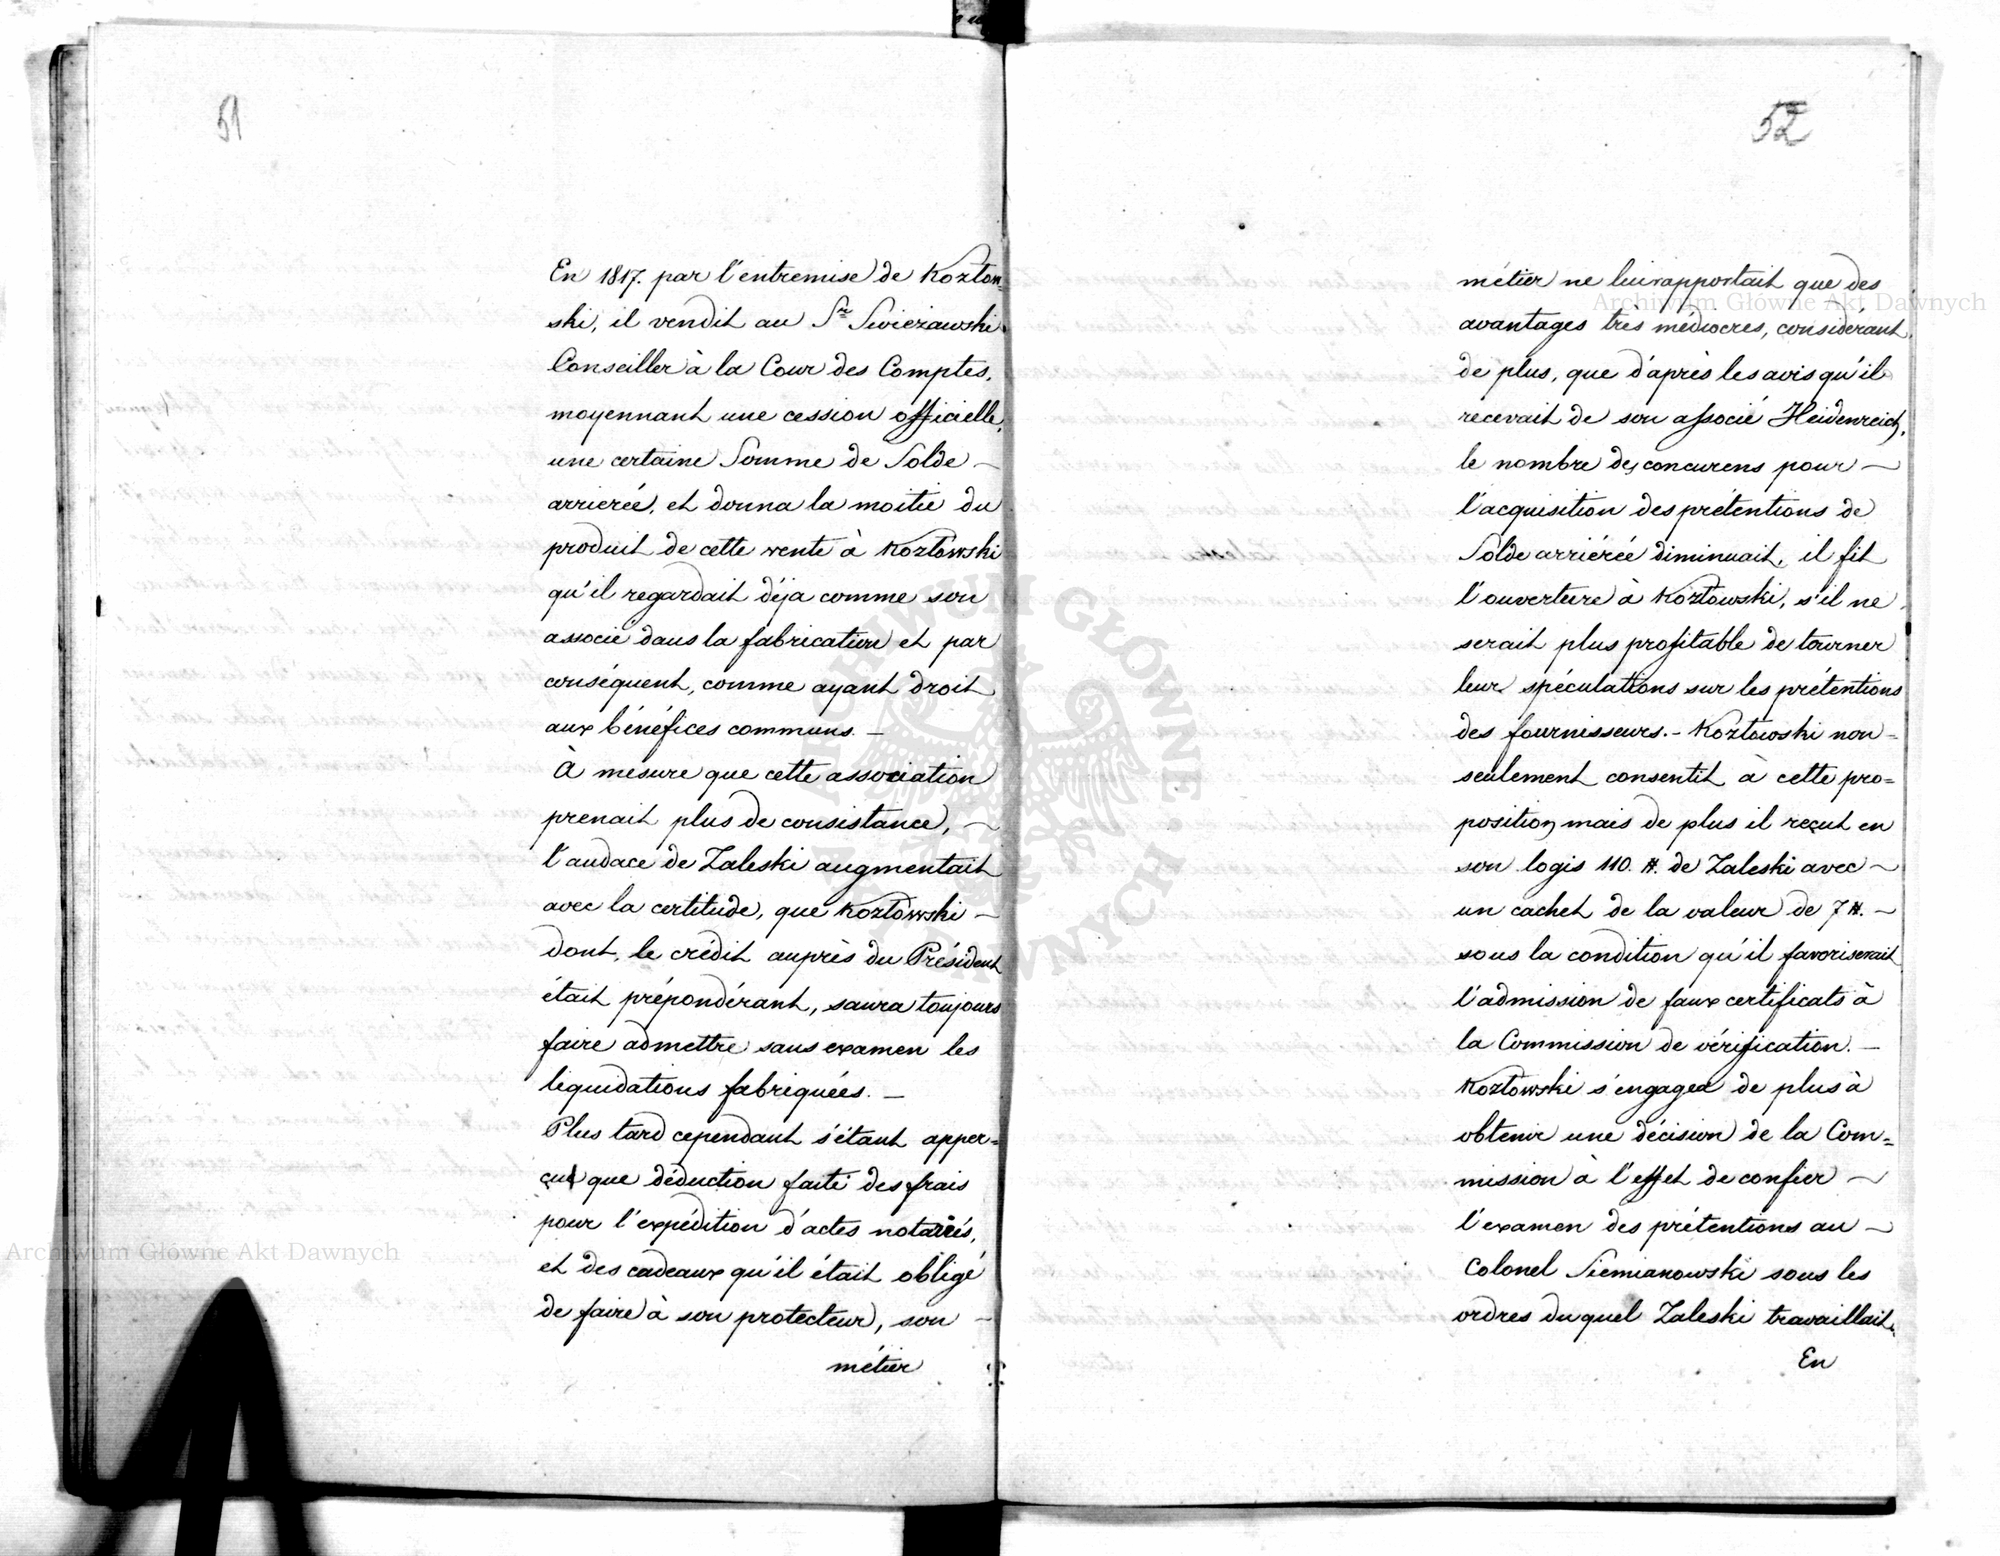 51
En 1817. par l'entremise de Kozłow=
ski, il vendit au Sr Swieżawski
Conseiller à la Cour des Comptes,
moyennant une cession officielle,
une certaine Somme de Solde —
arrierée, et donna la moitié du
produit de cette vente à Kozłowski
qu'il regardait déja comme son
associé dans la fabrication et par
conséquent, comme ayant droit
aux bénéfices communs. —
À mesure que cette association
prenait plus de consistance, —
l'audace de Zaleski augmentait
avec la certitude, que Kozłowski —
dont, le crédit auprès du Président
était prépondérant, saura toujours
faire admettre sans examen les
liquidations fabriquées. —
Plus tard cependant s'étant apper=
çu que déduction faite des frais
pour l'expédition d'actes notariés,
et des cadeaux qu'il était obligé
de faire à son protecteur, son —
métier
52
métier ne lui rapportait que des
avantages très médiocres, considérant
de plus, que d'après les avis qu'il
recevait de son associé Heidenreich,
le nombre des concurens pour —
l'acquisition des prétentions de
Solde arriérée diminuait, il fit
l'ouverture à Kozłowski, s'il ne
serait plus profitable de tourner
leur spéculations sur les prétentions
des fournisseurs. - Kozłowski non=
seulement consentit à cette pro=
position, mais de plus il reçut en
son logis 110. #. de Zaleski avec —
un cachet de la valeur de 7 #. —
sous la condition qu'il favoriserait
l'admission de faux certificats à
la Commission de vérification. —
Kozłowski s'engagea de plus à
obtenir une décision de la Com=
mission à l'effet de confier —
l'examen des prétentions au —
Colonel Siemianowski sous les
ordres duquel Zaleski travaillait.
En
Archiwum Główne Akt Dawnych
Archiwum Główne Akt Dawnych
ARCHIWUM GŁÓWNE AKT DAWNYCH